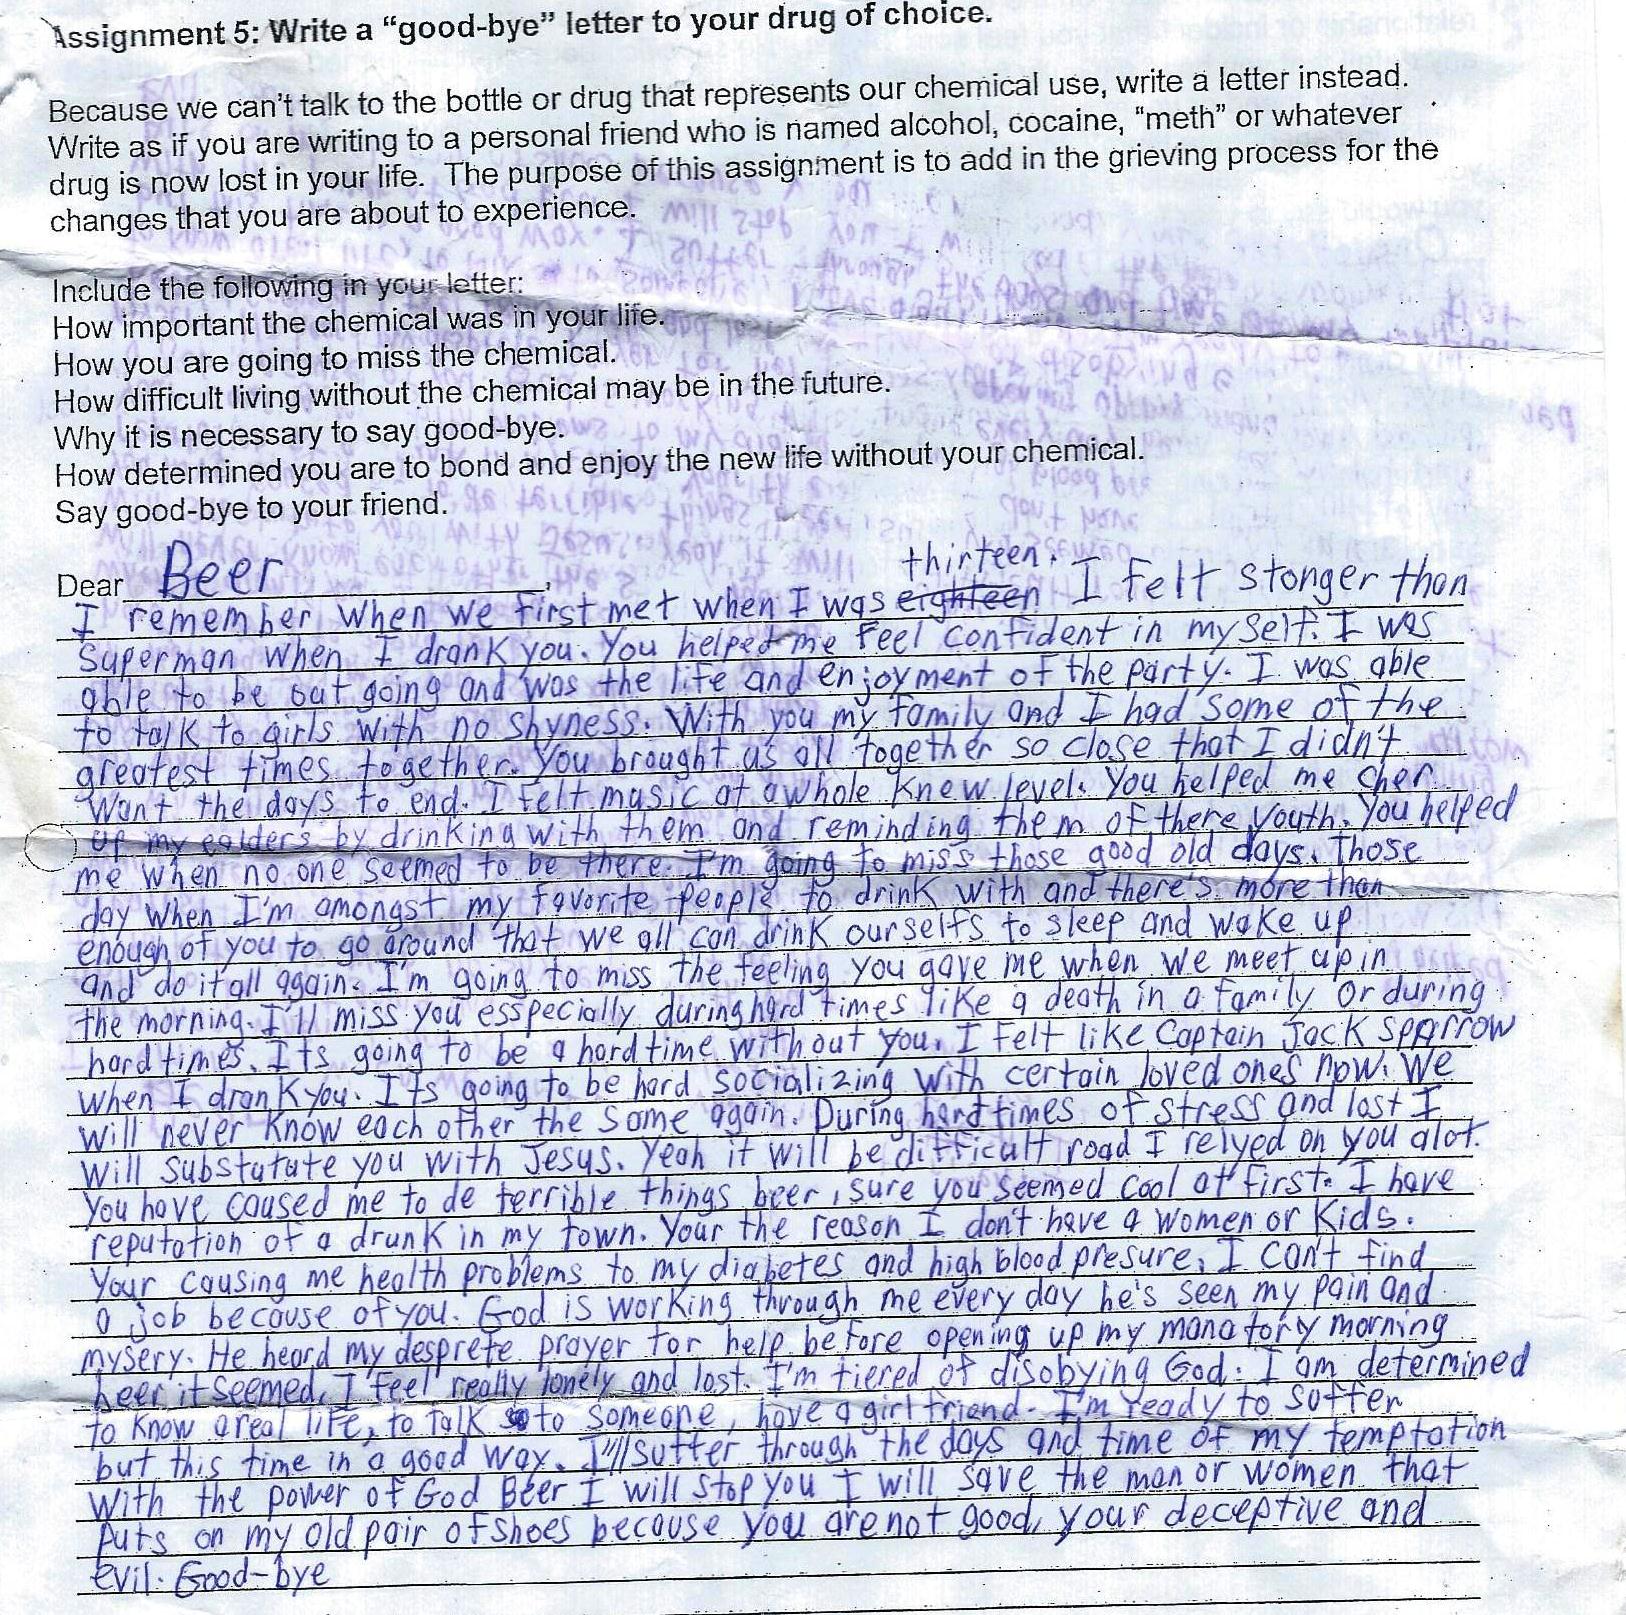 Assignment 5: Write a “good-bye” letter to your drug of choice.
Because we can't talk to the bottle or drug that represents our chemical use, write a letter instead.
Write as if you are writing to a personal friend who is named alcohol, cocaine, “meth” or whatever
drug is now lost in your life. The purpose of this assignment is to add in the grieving process for the
changes that you are about to experience.
Include the following in your letter:
How important the chemical was in your life.
How you are going to miss the chemical.
How difficult living without the chemical may be in the future.
Why it is necessary to say good-bye.
How determined you are to bond and enjoy the new life without your chemical.
Say good-bye to your friend.
Dear Beer,
I remember when we first met when I was eighteen thirteen. I felt stonger than
Superman when I drank you. You helped me feel confident in my self. I was
able to be out going and was the life and enjoyment of the party. I was able
to talk to girls with no shyness. With you my family and I had some of the
greatest times together. You brought us all together so close that I didn't
want the days to end. I felt music at a whole knew level. You helped me cher
up my ealders by drinking with them and reminding them of there youth. You helped
me when no one seemed to be there. I'm going to miss those good old days. Those
day when I'm amongst my favorite people to drink with and there's more than
enough of you to go around that we all can drink ourselfs to sleep and wake up
and do it all again. I'm going to miss the feeling you gave me when we meet up in
the morning. I'll miss you esspecially during hard times like a death in a family or during
hard times. Its going to be a hard time without you. I felt like Captain Jack Sparrow
when I drank you. Its going to be hard socializing with certain loved ones now. We
will never know each other the same again. During hard times of stress and lost I
will substatute you with Jesus. Yeah it will be difficult road I relyed on you alot.
You have caused me to de terrible things beer, sure you seemed cool at first. I have
reputation of a drunk in my town. Your the reason I don't have a women or kids.
Your causing me health problems to my diabetes and high blood presure. I can't find
a job because of you. God is working through me every day he's seen my pain and
mysery. He heard my desprete prayer for help before opening up my manatory morning
beer it seemed. I feel really lonely and lost. I'm tiered of disobying God. I am determined
to know a real life, to talk to someone, have a girlfriend. I'm ready to suffer
but this time in a good way. I'll suffer through the days and time of my temptation
with the power of God Beer I will stop you I will save the man or women that
puts on my old pair of shoes because you are not good, your deceptive and
evil. Good-bye